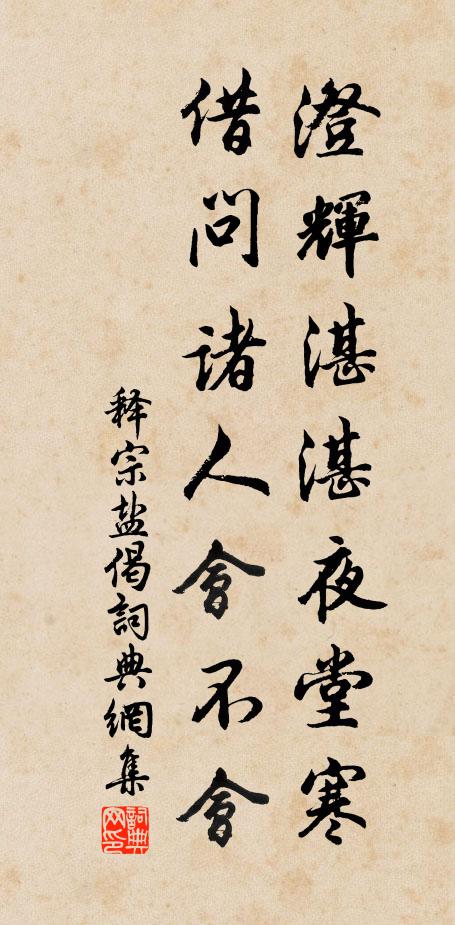 澄輝湛湛夜堂寒
借問諸人會不會
释宗盐偈詞典網集
詞典网印